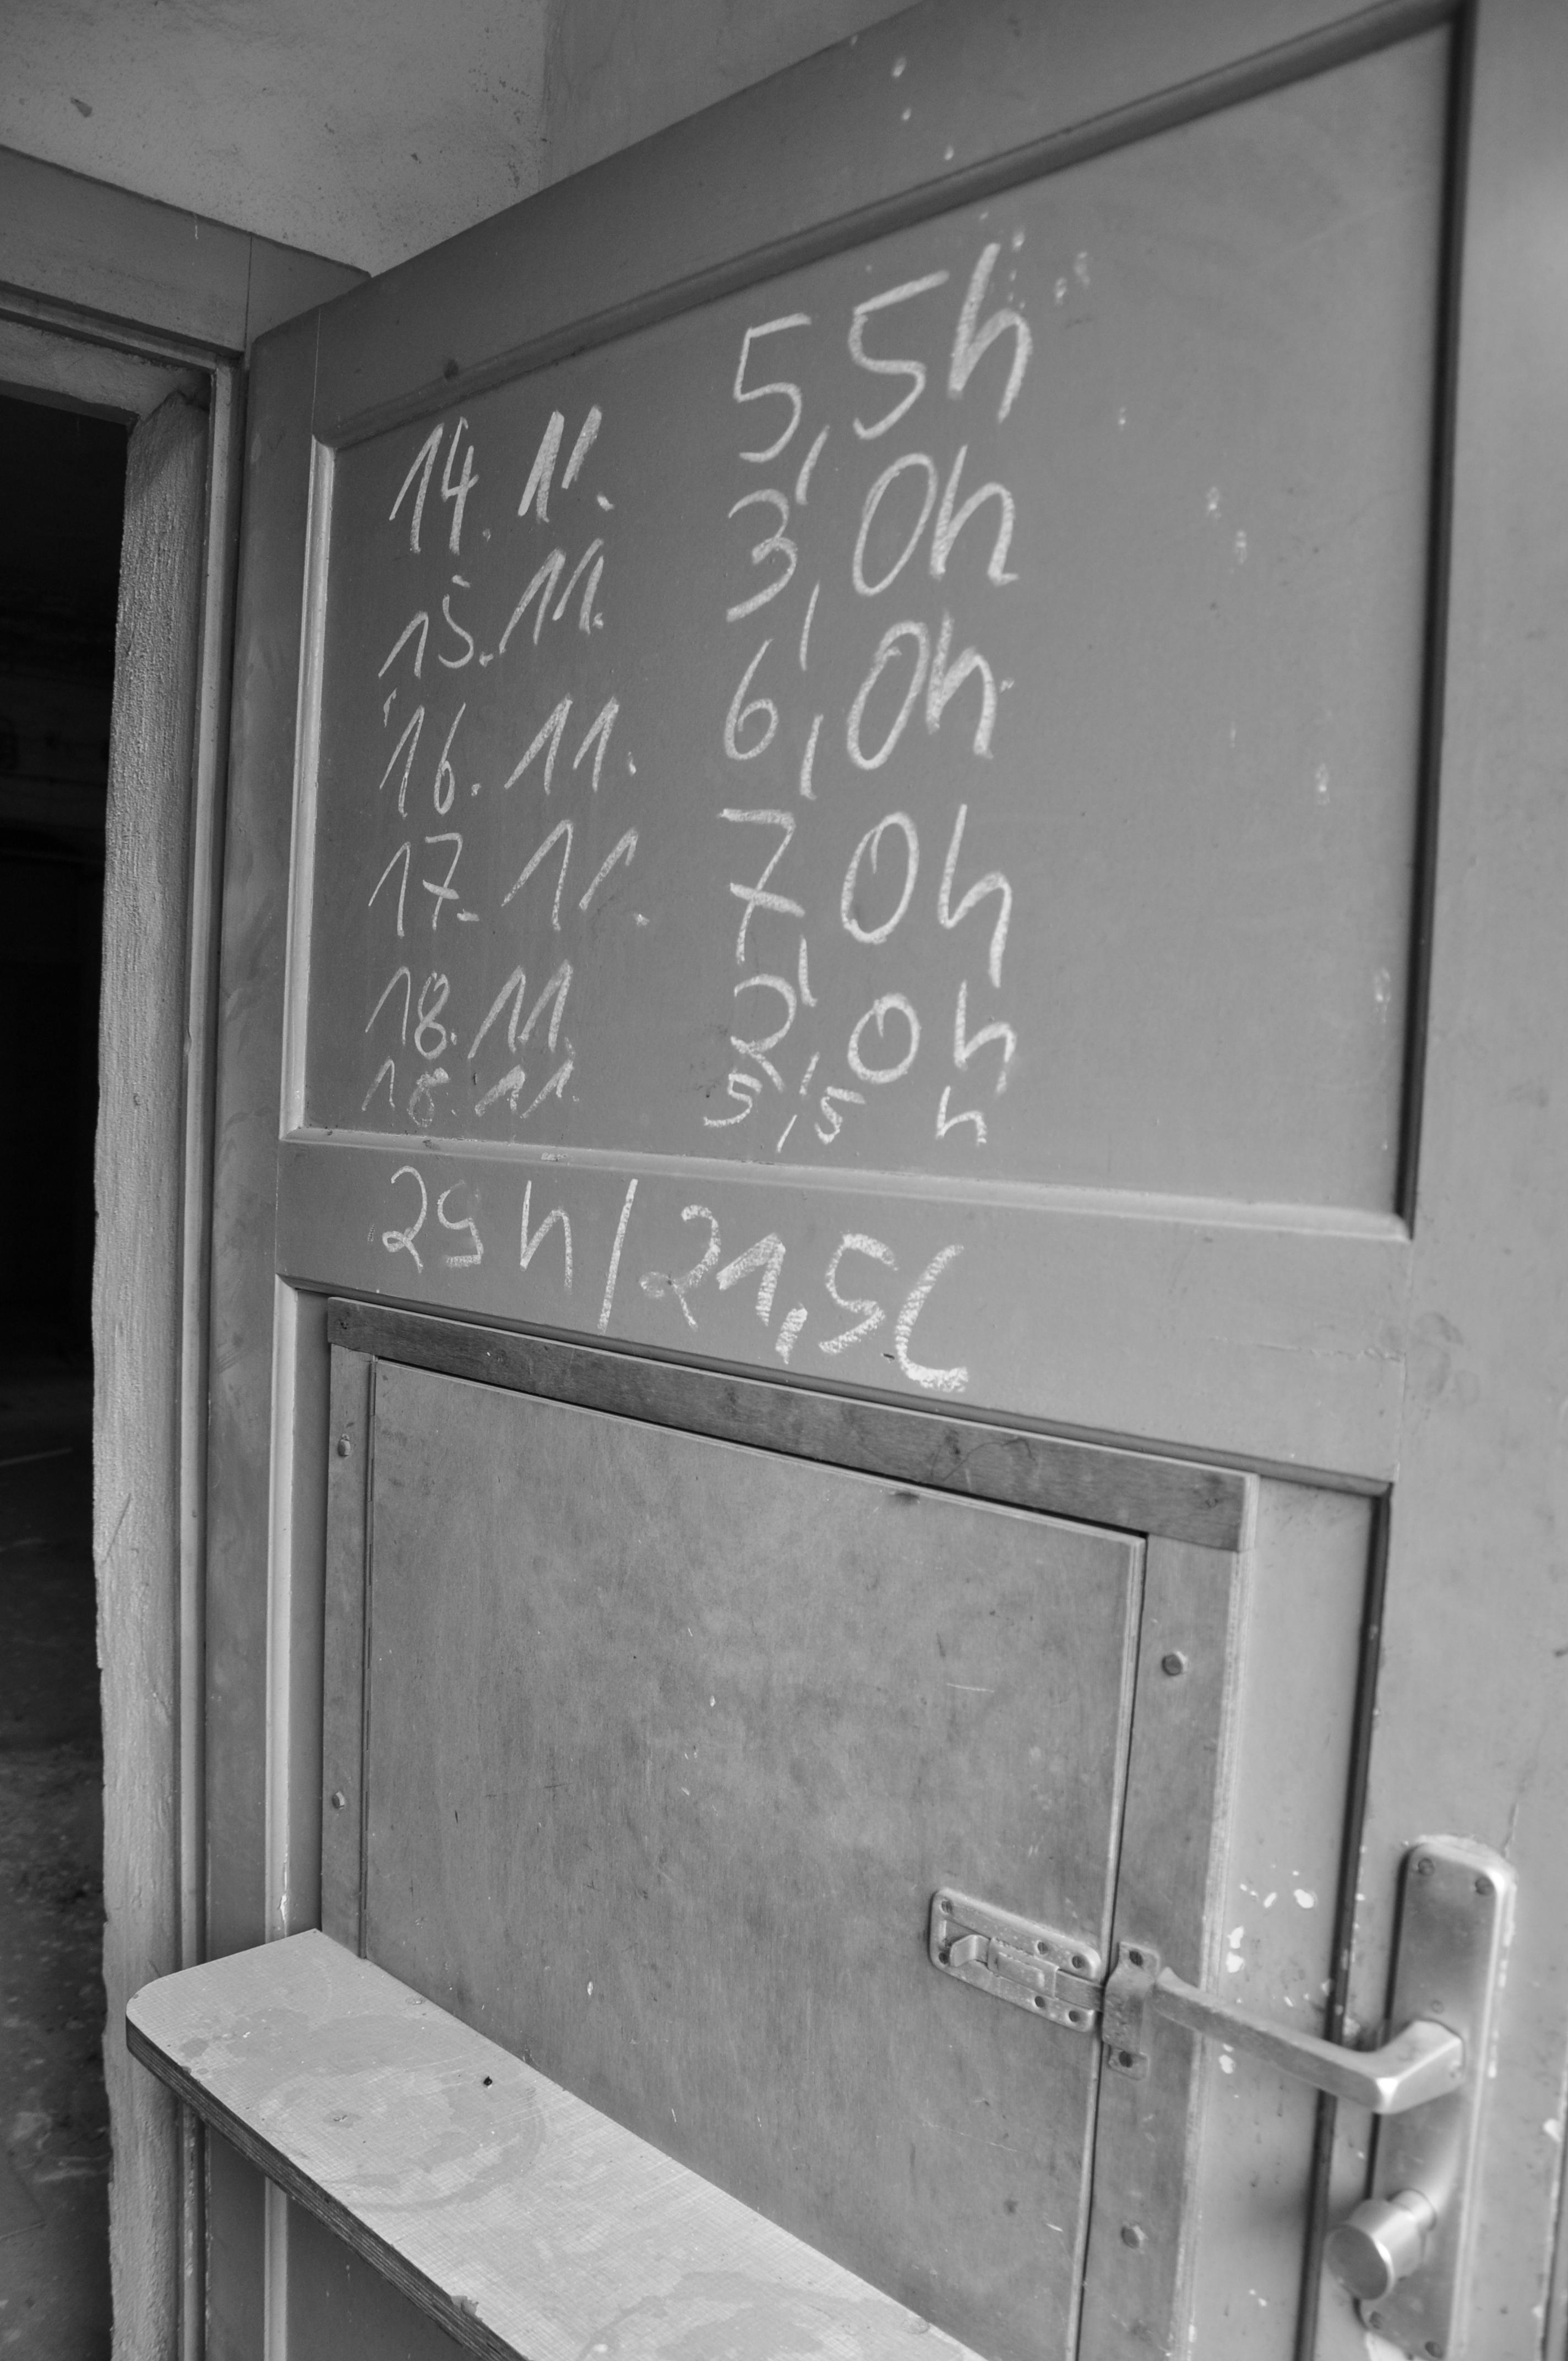 14.11. 5,5h
15.11. 3,0h
16.11. 6,0h
17.11. 7,0h
18.11. 2,0h
18.11. 5,5 h
29 h / 21,5 l